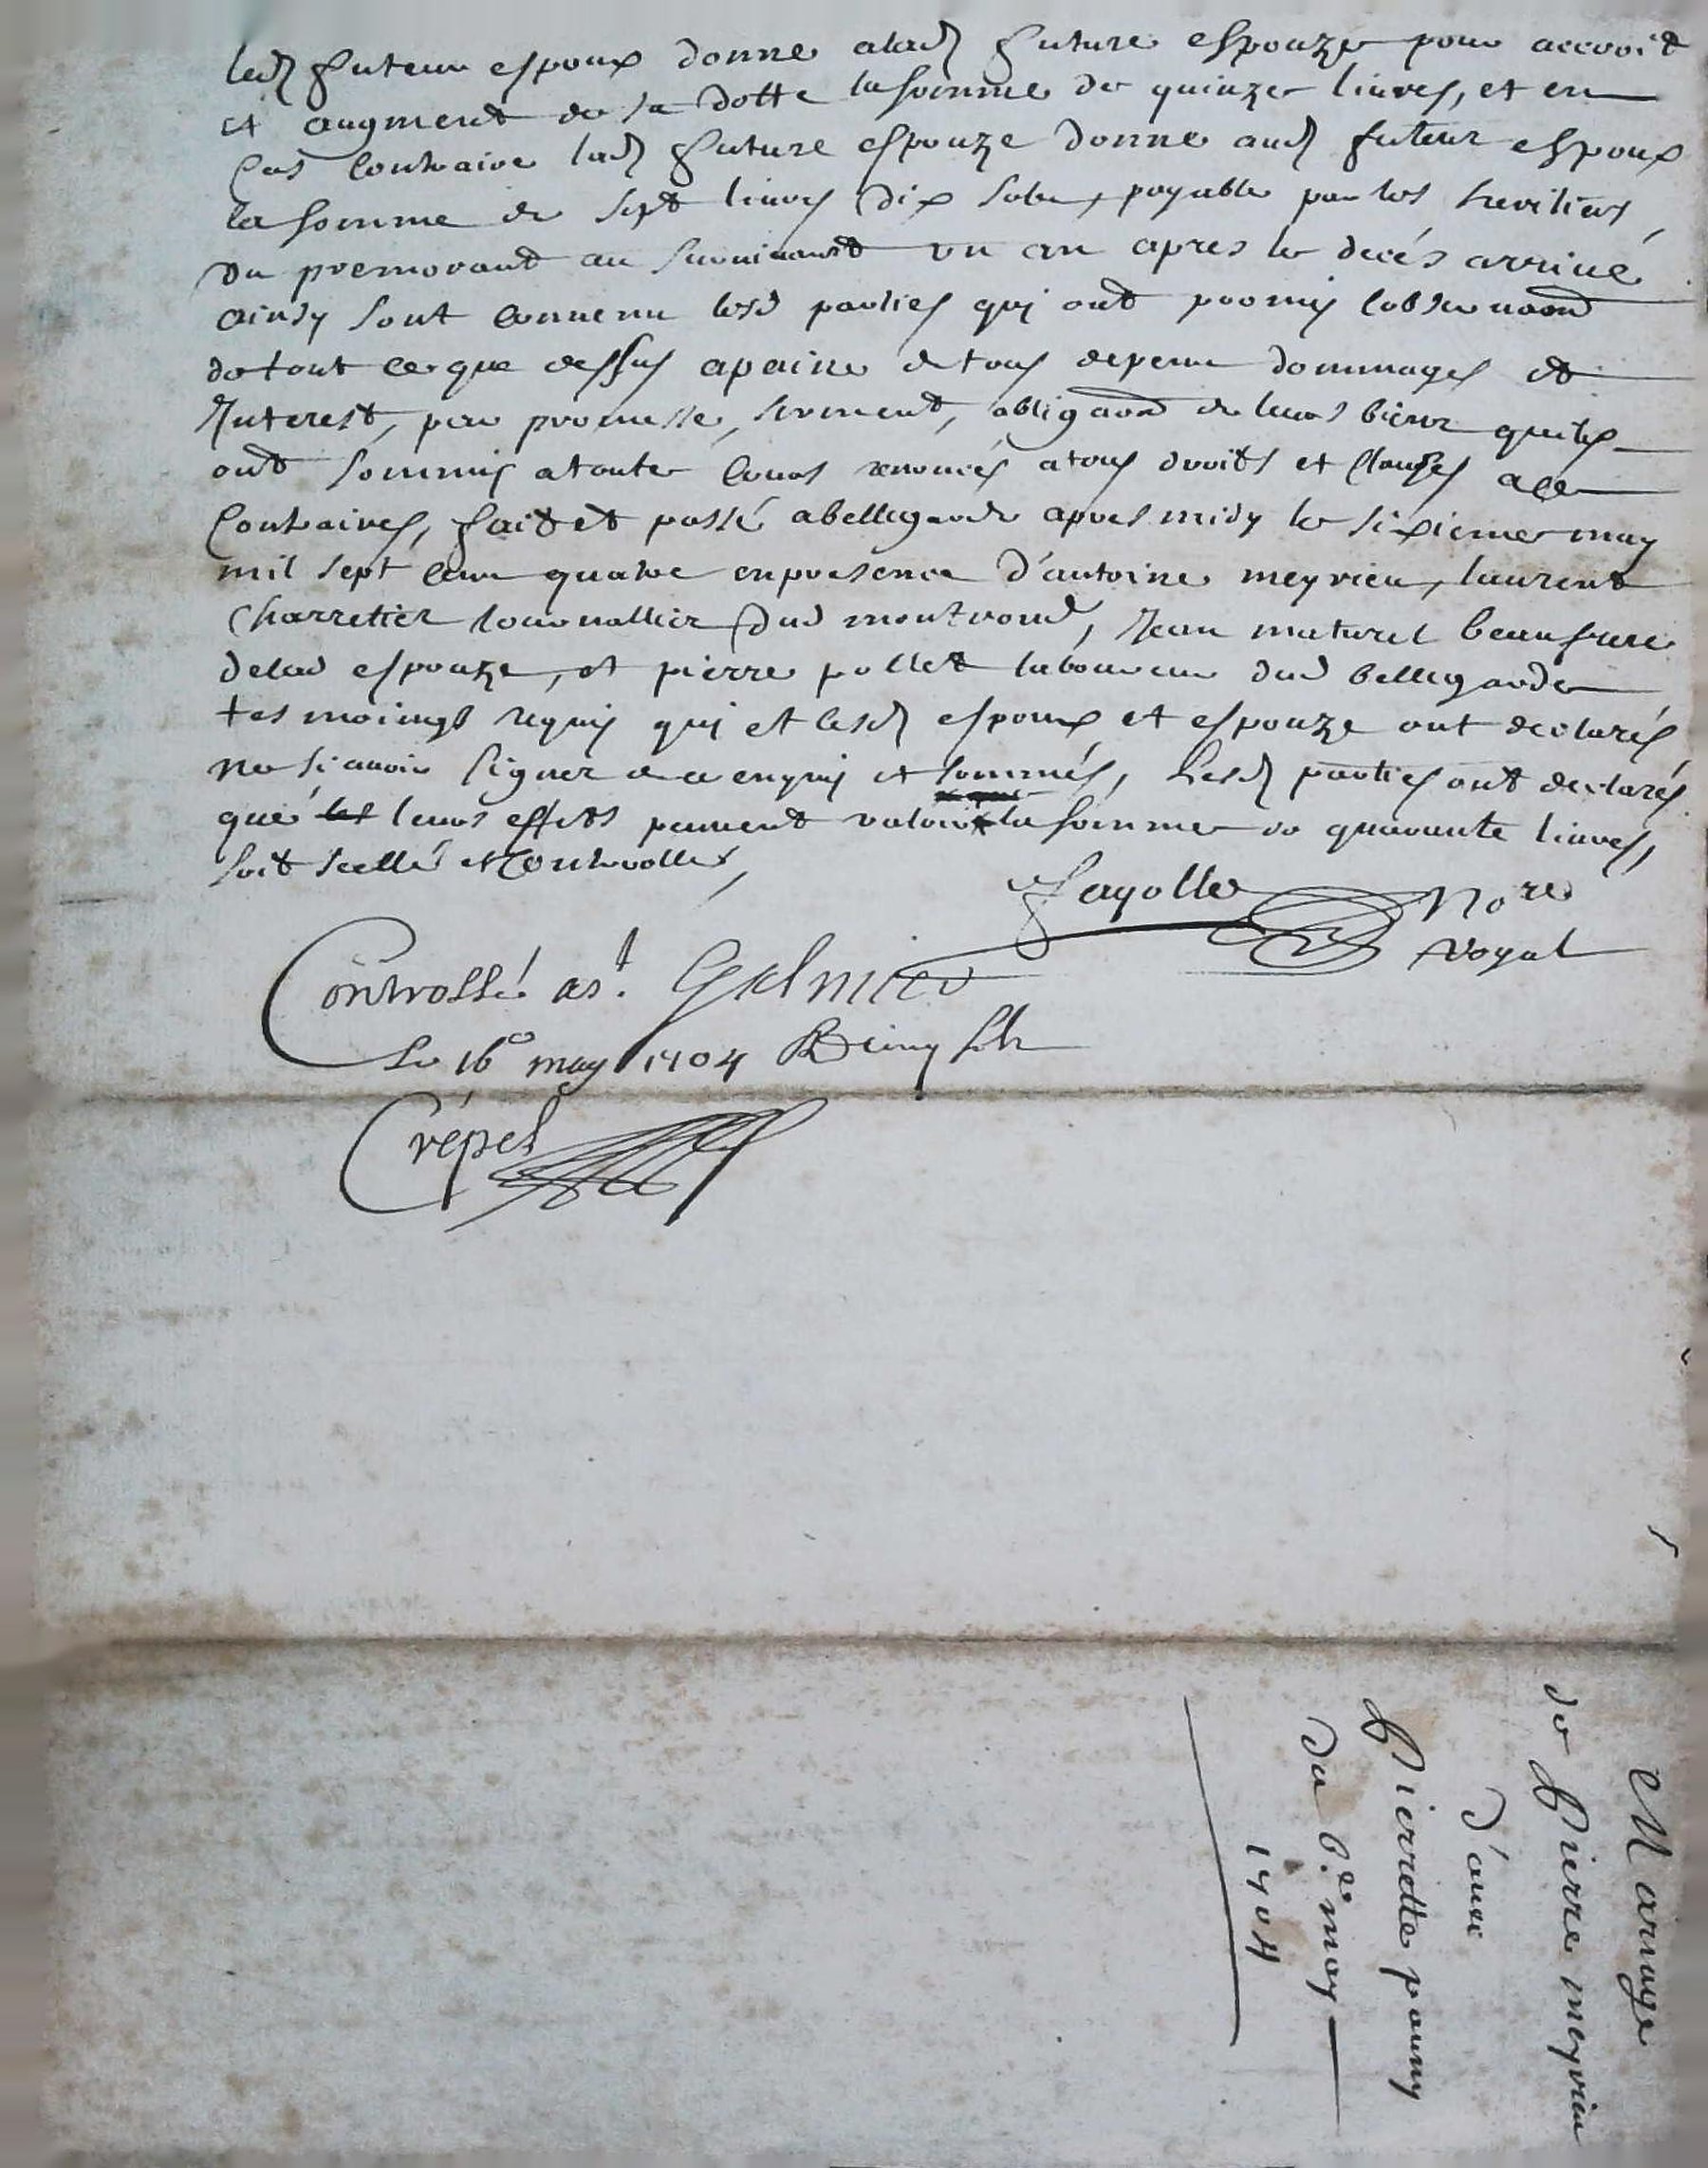 led futeur espoux donne alad future espouze pour accroid
et augment de sa dotte la somme de quinze livres, et en
Cas Contraire lad future espouze donne aud futeur espoux
la somme de sept livres dix sols, payable par les heritiers
du premorant au survivant un an apres le decés arrivé
ainsy sont Convenu lesd parties qui ont promis lobservaon
de tout ce que dessus a paine de tous depens dommages et
Interest, par promesse, serment, obligaon de leurs biens quils
ont sommis a toutes Cours renoncés a tous droits et Clauzes a ce
Contraires, fait et passé a bellegarde apres midy le sixieme may
mil sept Cens quatre en presence d'antoine meyrieu, laurent
Charretier Journallier dud montrond, Jean maturel beaufrere
delad espouze, et pierre pollet laboureur dud bellegarde
tesmoings requis qui et lesd espoux et espouze ont declarés
ne scavoir signer de ce enquis et sommés, Lesd parties ont declarés
que les leurs effets peuvent valoir la somme de quarante livres,
soit scellé et Controlle,
fayolle Nore
royal
Controllé a st. Galmier
Le 16e may 1704 sols
Crépet
Mariage
de Pierre meyrieu
d'avec
Pierrette pouny
du 6.e may
1704